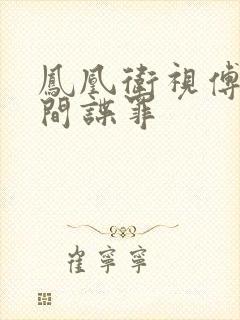 鳳凰衛視傅
間諜罪
崔寧寧